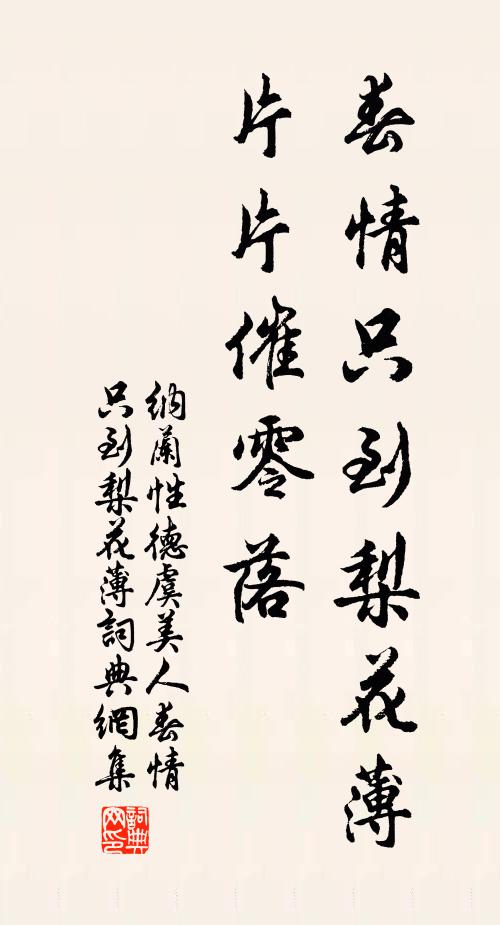 春情只到梨花薄
片片催零落
納蘭性德虞美人春情
只到梨花薄詞典網集
詞典
网印